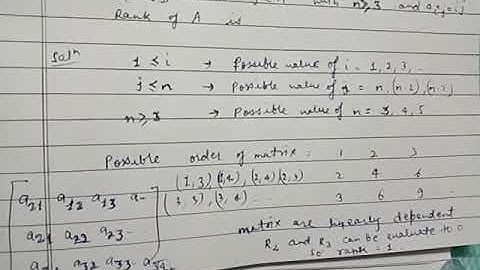 with n≥3 and aij=ij
Rank of A is
Soln
1 ≤ i → Possible value of i = 1, 2, 3, ..
j ≤ n → Possible value of j = n, (n-1), (n-2)
n≥3 → Possible value of n = 3, 4, 5
Possible order of matrix = 1 2 3
(1,3) (1,4), (2,4) (2,5) 2 4 6
(3,5), (3,4) ... 3 6 9 ..
a21 a12 a13 a-
a21 a22 a23-
a32 a33- a34
matrix are linearly dependent
R2 and R3 can be evaluate to 0
so rank = 1